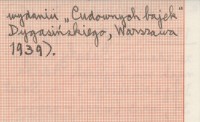 wydaniu „Cudownych bajek"
Dygasińskiego, Warszawa
1939).